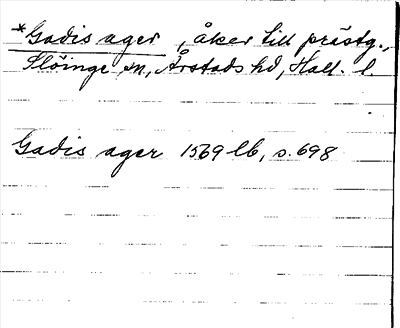 *Gadis ager, åker till prästg.,
Slöinge sn, Årstads hd, Hall. l.
Gadis ager 1569 lb, s. 698